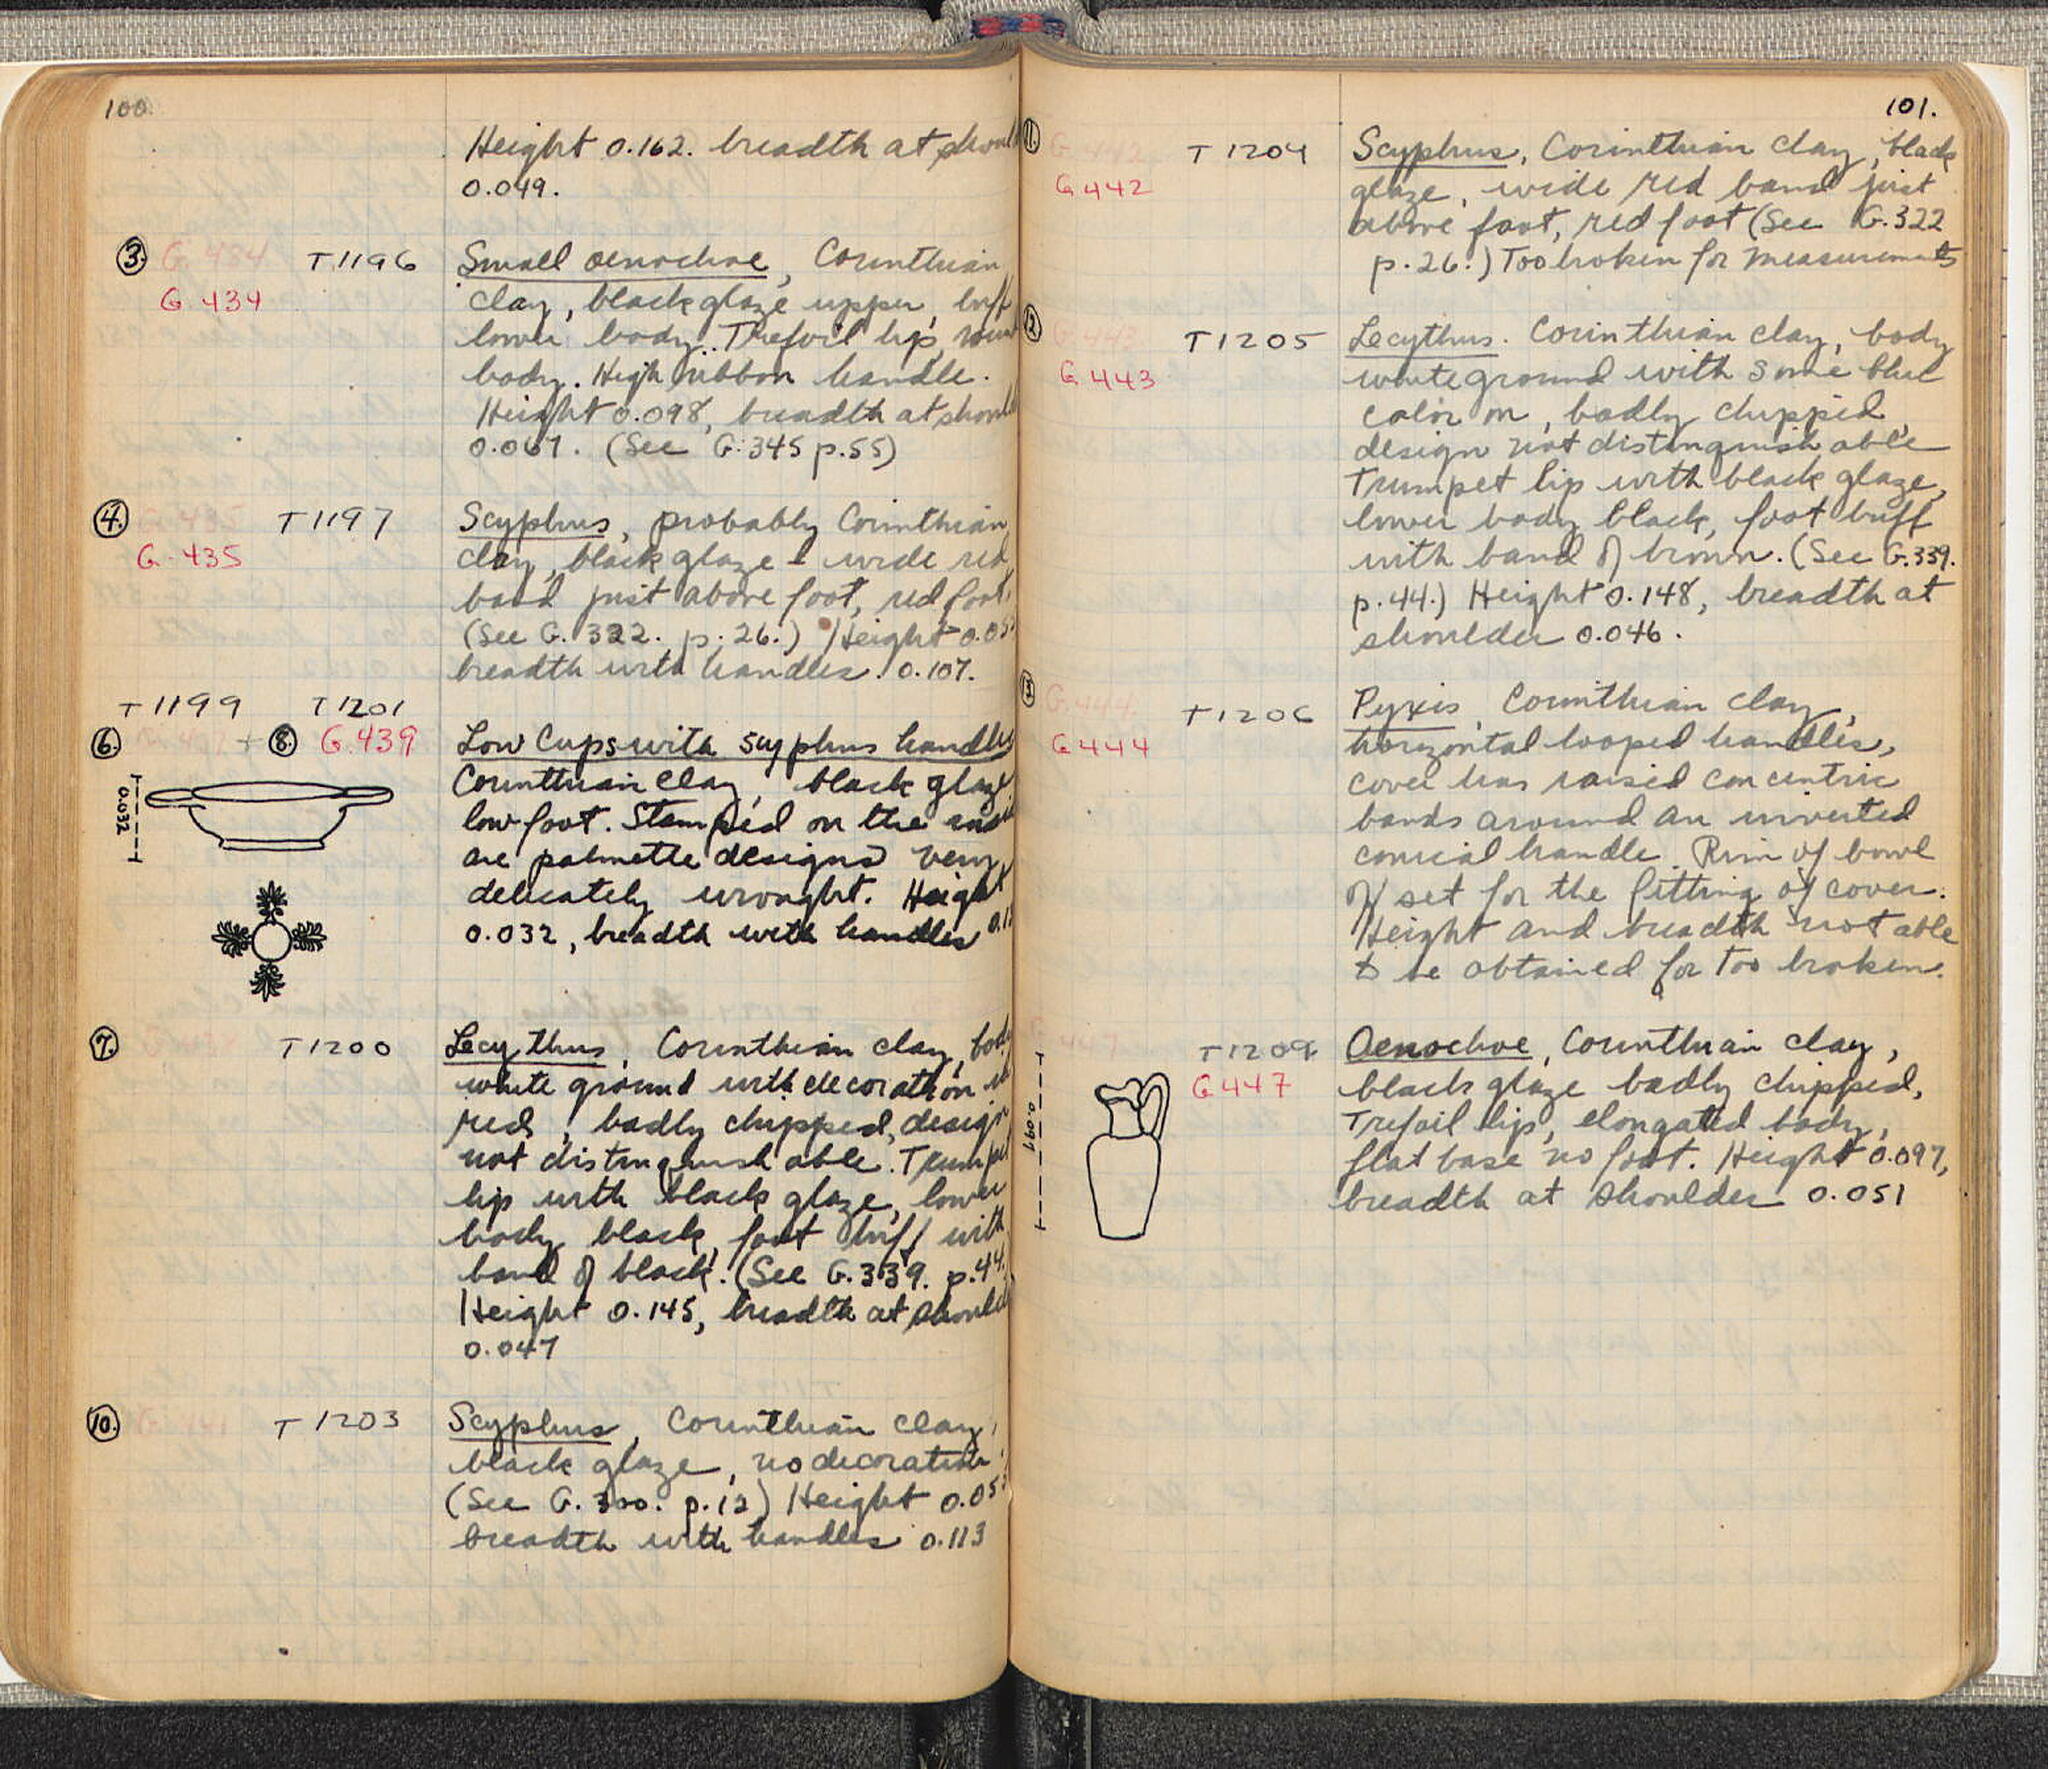 100.
Height 0.162. breadth at should
0.049.
③ G.484 T1196 Small oenochoe, Corinthian
G.434 clay, black glaze upper, buff
lower body. Trefoil lip, round
body. High ribbon handle.
Height 0.098, breadth at should
0.067. (See G.345 p.55)
④ G.435 T1197 Scyphus, probably Corinthian
G.435 clay, black glaze - wide red
band just above foot, red foot.
(See G. 322. p. 26.) Height 0.05
breadth with handles. 0.107.
T1199 T1201
⑥ + ⑧ G.439 Low Cups with scyphus handles
Corinthian clay, black glaze
low foot. Stamped on the inside
are palmette designs very
delicately wrought. Height
0.032, breadth with handles 0.1
0.032
⑦ T1200 Lecythus, Corinthian clay, body
white ground with decoration in
red, badly chipped, design
not distinguishable. Trumpet
lip with black glaze, lower
body black, foot buff with
band of black. (See G.339. p.44.
Height 0.145, breadth at should
0.047
⑩ G.441 T1203 Scyphus, Corinthian clay,
black glaze, no decoration.
(See G. 300. p.12) Height 0.05
breadth with handles 0.113
101.
⑪ G.442 T1204 Scyphus, Corinthian clay, black
G.442 glaze, wide red band just
above foot, red foot (See G.322
p.26.) Too broken for measurements
⑫ G.443 T1205 Lecythus. Corinthian clay, body
G.443 white ground with some blue
color on, badly chipped,
design not distinguishable
Trumpet lip with black glaze,
lower body black, foot buff
with band of brown. (See G.339.
p.44.) Height 0.148, breadth at
shoulder 0.046.
⑬ G.444. T1206 Pyxis, Corinthian clay,
G.444 horizontal looped handles,
cover has raised concentric
bands around an inverted
conical handle. Rim of bowl
off set for the fitting of cover.
Height and breadth not able
to be obtained for too broken.
G.447 T1209 Oenochoe, Corinthian clay,
G447 black glaze badly chipped,
Trefoil lip, elongated body,
flat base no foot. Height 0.097,
breadth at shoulder 0.051
0.097